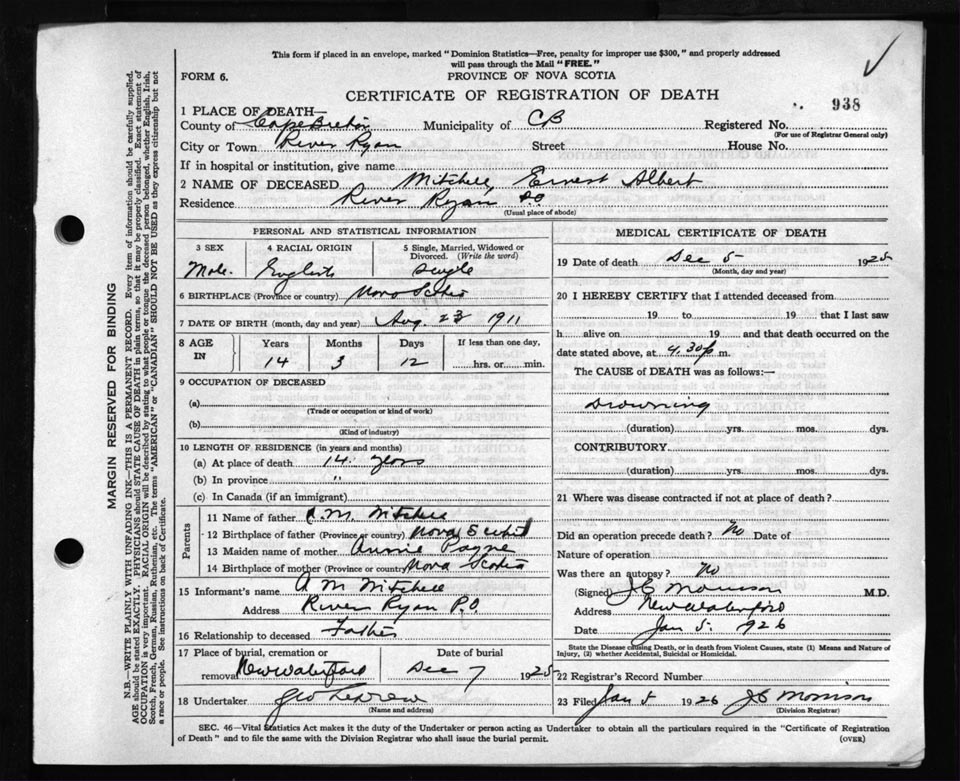 This form if placed in an envelope, marked "Dominion Statistics—Free, penalty for improper use $300," and properly addressed
will pass through the Mail "FREE."
FORM 6.
PROVINCE OF NOVA SCOTIA
CERTIFICATE OF REGISTRATION OF DEATH
938
1 PLACE OF DEATH—
County of Cape Breton Municipality of CB Registered No.
(For use of Registrar General only)
City or Town River Ryan Street House No.
If in hospital or institution, give name
2 NAME OF DECEASED Mitchell, Ernest Albert
Residence River Ryan P.O
(Usual place of abode)
PERSONAL AND STATISTICAL INFORMATION
3 SEX 4 RACIAL ORIGIN 5 Single, Married, Widowed or Divorced. (Write the word)
Male. English Single
6 BIRTHPLACE (Province or country) Nova Scotia
7 DATE OF BIRTH (month, day and year) Aug. 23 1911
8 AGE IN Years Months Days If less than one day,
14 3 12 hrs. or min.
9 OCCUPATION OF DECEASED
(a)
(Trade or occupation or kind of work)
(b)
(Kind of industry)
10 LENGTH OF RESIDENCE (in years and months)
(a) At place of death 14 years
(b) In province "
(c) In Canada (if an immigrant)
Parents
11 Name of father A.M. Mitchell
12 Birthplace of father (Province or country) Nova Scotia
13 Maiden name of mother Annie Payne
14 Birthplace of mother (Province or country) Nova Scotia
15 Informant's name A M Mitchell
Address River Ryan P.O.
16 Relationship to deceased Father
17 Place of burial, cremation or removal Date of burial
New Waterford Dec 7 1925
18 Undertaker Geo
(Name and address)
MEDICAL CERTIFICATE OF DEATH
19 Date of death Dec 5 1925
(Month, day and year)
20 I HEREBY CERTIFY that I attended deceased from
19 to 19 that I last saw
h alive on 19 and that death occurred on
date stated above, at 4.30 p m.
The CAUSE of DEATH was as follows:—
Drowning
(duration) yrs. mos. dys.
CONTRIBUTORY
(duration) yrs. mos. dys.
21 Where was disease contracted if not at place of death?
Did an operation precede death? No Date of
Nature of operation
Was there an autopsy? No
(Signed) J C Morrison M.D.
Address New Waterford
Date Jan 5. 1926
State the Disease causing Death, or in death from Violent Causes, state (1) Means and Nature of
Injury, (2) whether Accidental, Suicidal or Homicidal.
22 Registrar's Record Number
23 Filed Jan 5 1926 J C Morrison
(Division Registrar)
SEC. 46—Vital Statistics Act makes it the duty of the Undertaker or person acting as Undertaker to obtain all the particulars required in the "Certificate of Registration
of Death" and to file the same with the Division Registrar who shall issue the burial permit. (OVER)
MARGIN RESERVED FOR BINDING
N.B.—WRITE PLAINLY WITH UNFADING INK—THIS IS A PERMANENT RECORD. Every item of information should be carefully supplied.
AGE should be stated EXACTLY. PHYSICIANS should STATE CAUSE OF DEATH in plain terms, so that it may be properly classified. Exact statement of
OCCUPATION is very important. RACIAL ORIGIN will be described by stating to what people or tongue the deceased person belonged, whether English, Irish,
Scotch, French, German, Russian, Ruthenian, etc. The terms "AMERICAN" or "CANADIAN" SHOULD NOT BE USED as they express citizenship but not
a race or people. See instructions on back of Certificate.